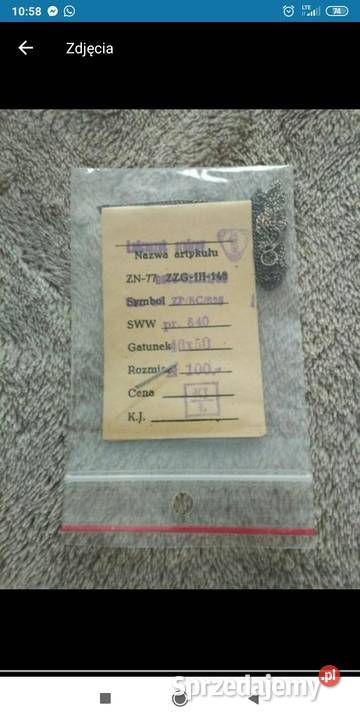 10:58
LTE
74
Zdjęcia
Nazwa artykułu
ZN-77 ZZG-III-148
Symbol
SWW pr. 840
Gatunek 40x50
Rozmiar 100,-
Cena
K.J.
Sprzedajemy.pl